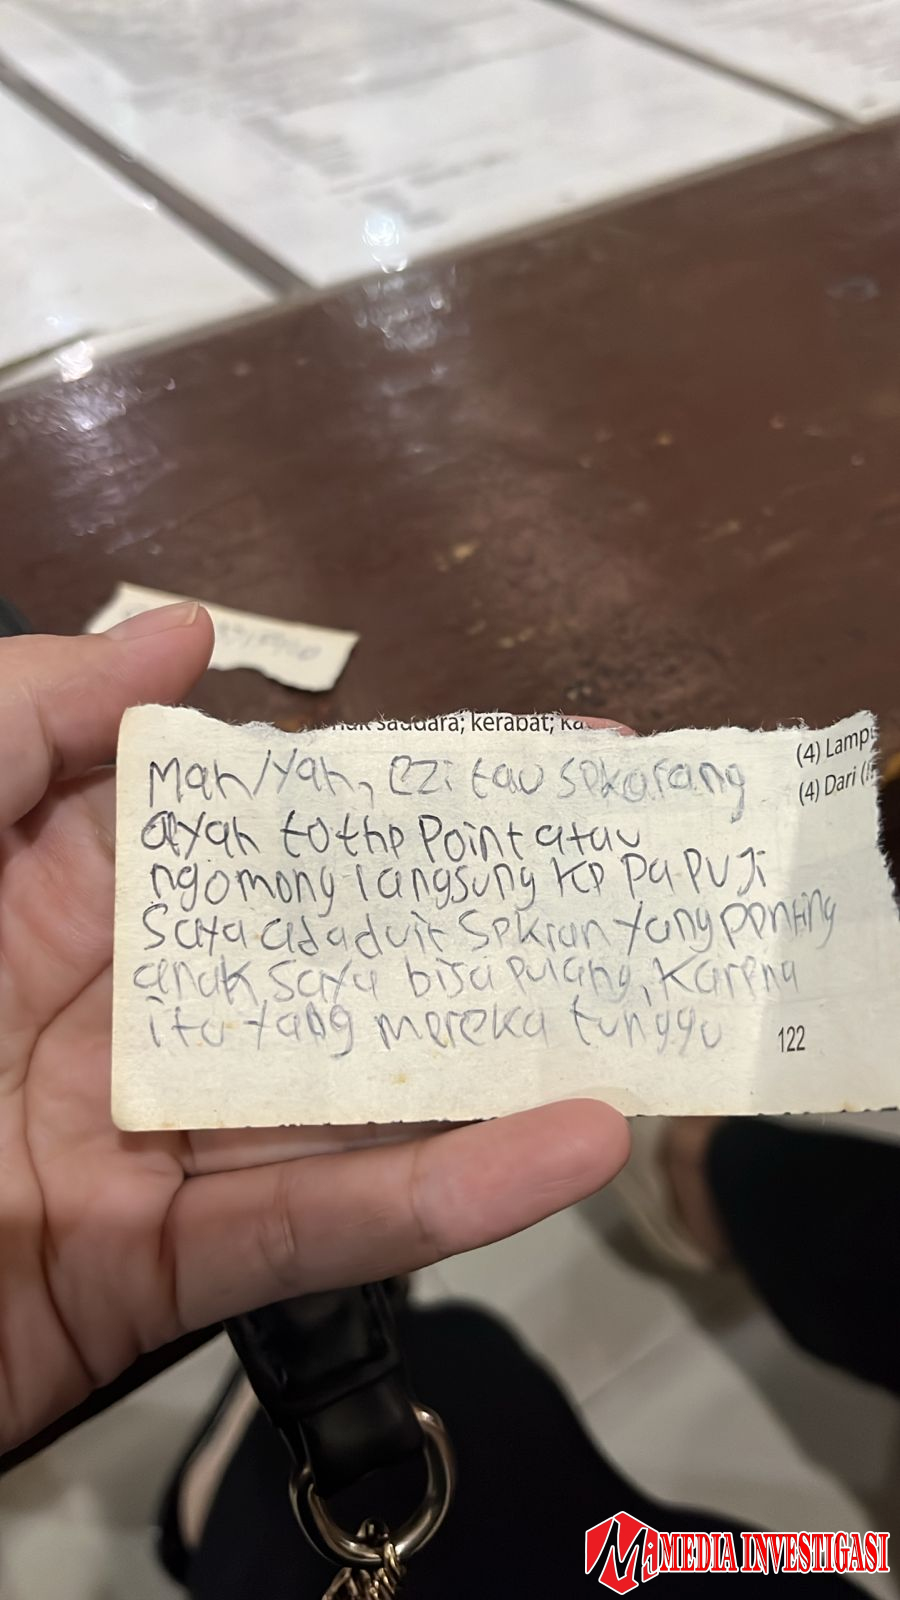 saudara; kerabat;
(4) Lamp
(4) Dari
Mah/Yah, Ezi tau sekarang
ayah to the point atau
ngomong langsung ke pa puji
saya ada duit sekian yang penting
anak saya bisa pulang, karena
itu yang mereka tunggu
122
MEDIA INVESTIGASI